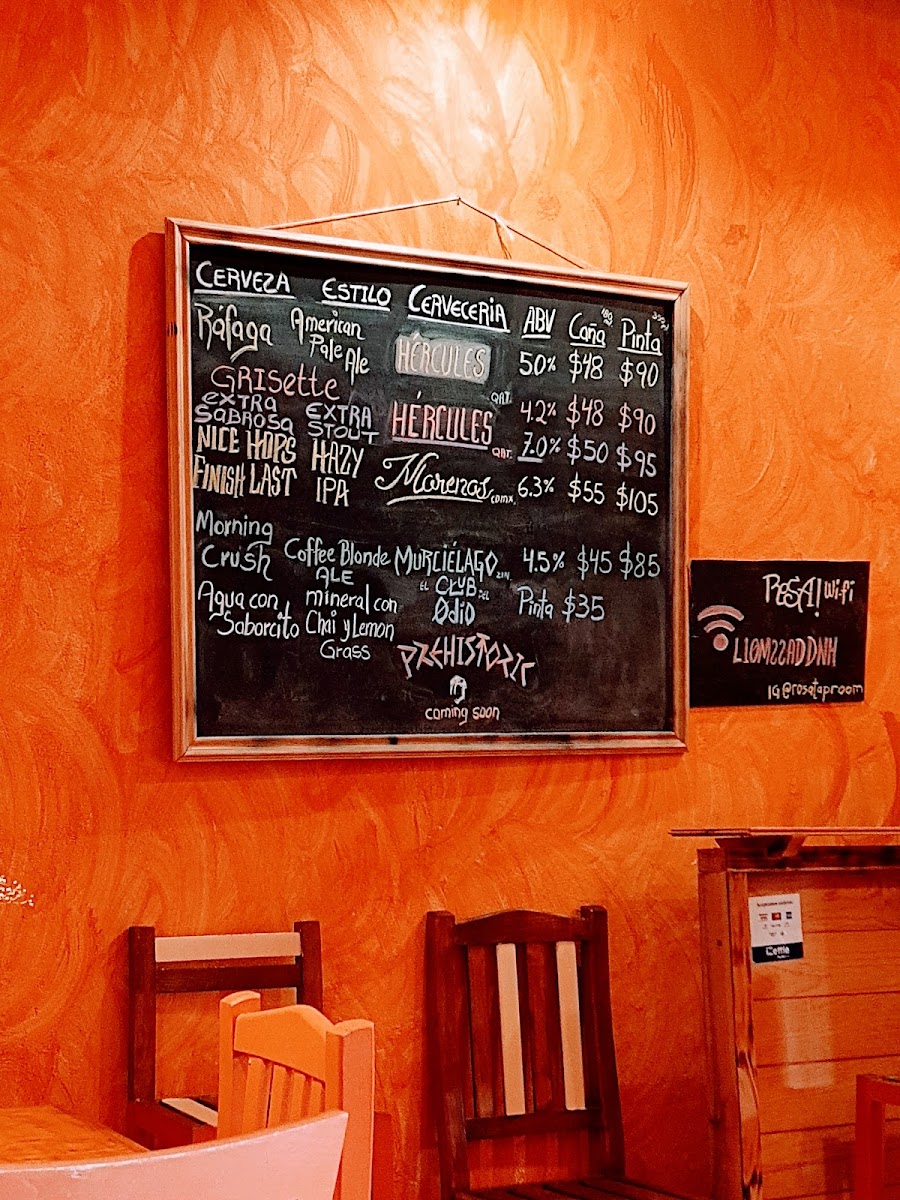 CERVEZA ESTILO CERVECERIA ABV Caña Pinta
Ráfaga American Pale Ale HÉRCULES QRT. 50% $48 $90
GRISETTE HÉRCULES QRT. 4.2% $48 $90
EXTRA SABROSA EXTRA STOUT 7.0% $50 $95
NICE HOPS FINISH LAST HAZY IPA Morenos CDMX. 6.3% $55 $105
Morning Crush Coffee Blonde ALE MURCIÉLAGO 4.5% $45 $85
Agua con Saborcito mineral con Chai y Lemon Grass EL CLUB DEL ØDIO Pinta $35
PREHISTORIC
coming soon
ROSA! Wi-fi
L10M22ADDNH
IG @rosataproom